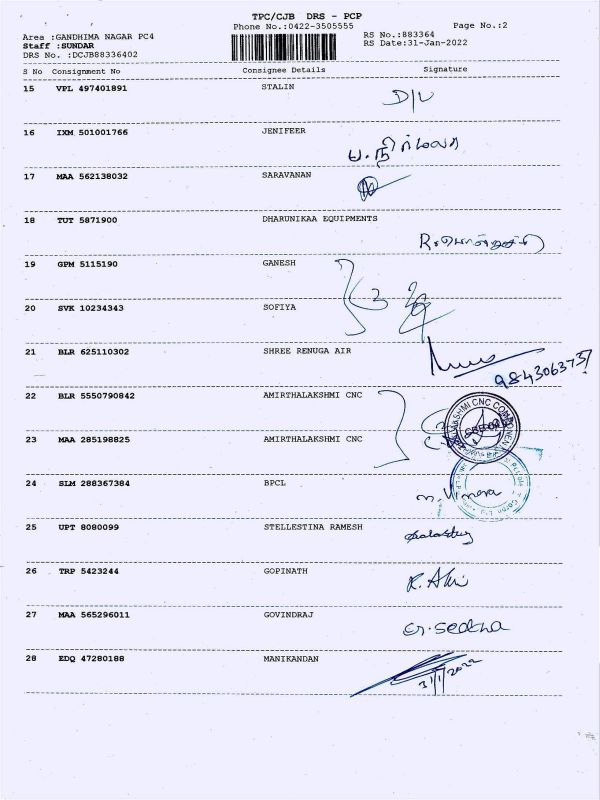 TPC/CJB DRS - PCP
Phone No.:0422-3505555
Page No.:2
Area :GANDHIMA NAGAR PC4
RS No.:883364
Staff :SUNDAR
RS Date:31-Jan-2022
DRS No. :DCJB88336402
S No Consignment No Consignee Details Signature
15 VPL 497401891 STALIN
D/L
16 IXM 501001766 JENIFEER
17 MAA 562138032 SARAVANAN
18 TUT 5871900 DHARUNIKAA EQUIPMENTS
19 GPM 5115190 GANESH
20 SVK 10234343 SOFIYA
21 BLR 625110302 SHREE RENUGA AIR
22 BLR 5550790842 AMIRTHALAKSHMI CNC
23 MAA 285198825 AMIRTHALAKSHMI CNC
24 SLM 288367384 BPCL
25 UPT 8080099 STELLESTINA RAMESH
26 TRP 5423244 GOPINATH
27 MAA 565296011 GOVINDRAJ
28 EDQ 47280188 MANIKANDAN
31/1/2022